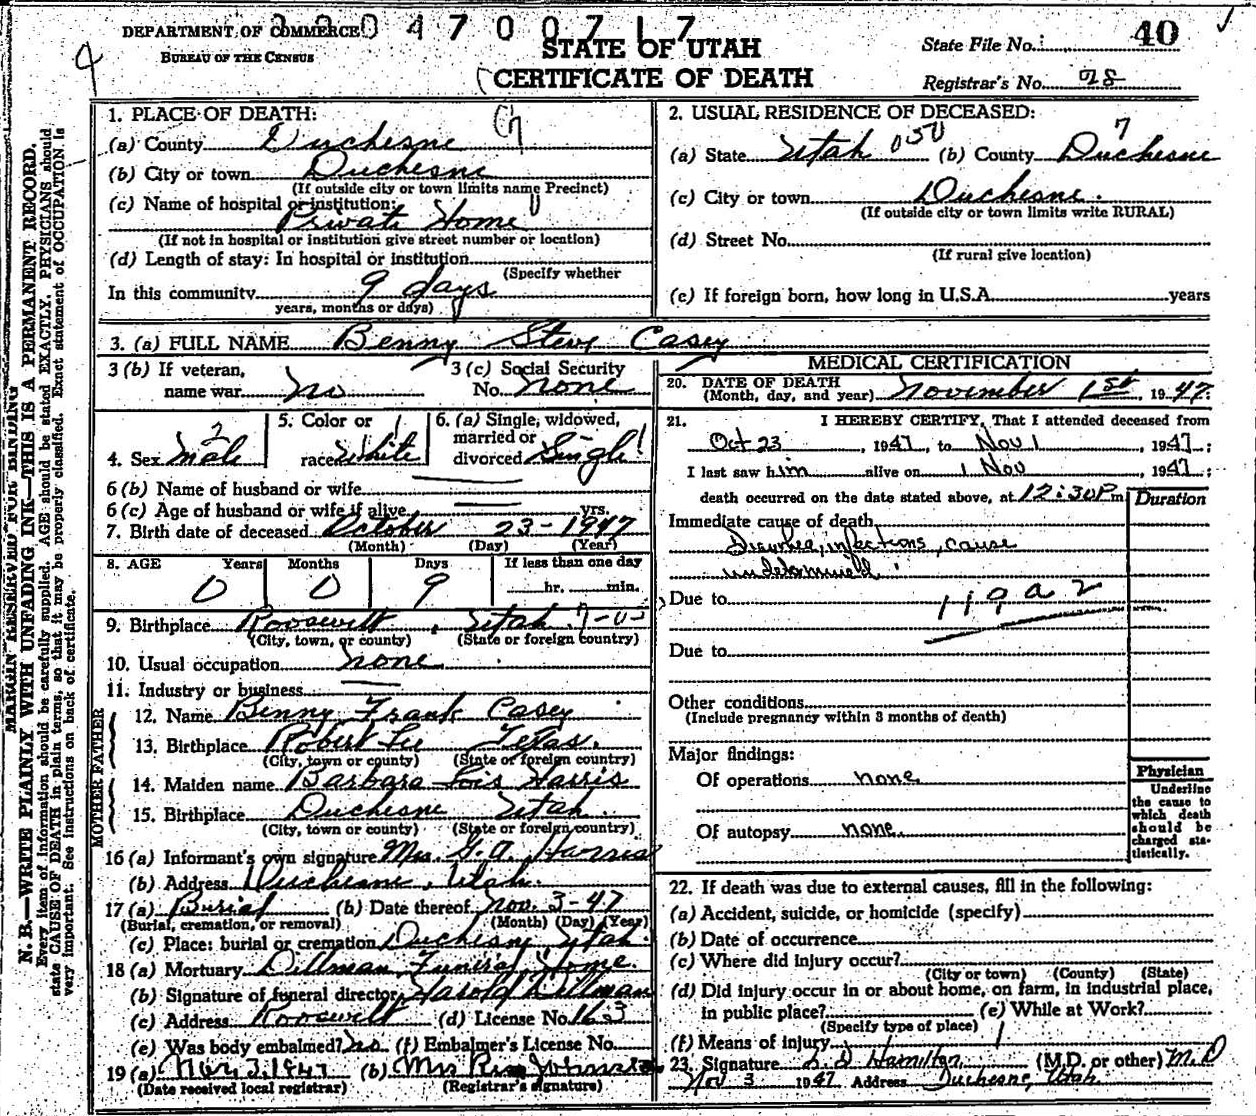 3 3 0 4 7 0 0 7 1 7
DEPARTMENT OF COMMERCE
BUREAU OF THE CENSUS
STATE OF UTAH
CERTIFICATE OF DEATH
State File No. 40
Registrar's No. 28
MARGIN RESERVED FOR BINDING
N. B.—WRITE PLAINLY WITH UNFADING INK—THIS IS A PERMANENT RECORD.
Every item of information should be carefully supplied. AGE should be stated EXACTLY. PHYSICIANS should
state CAUSE OF DEATH in plain terms, so that it may be properly classified. Exact statement of OCCUPATION is
very important. See instructions on back of certificate.
1. PLACE OF DEATH:
(a) County Duchesne
(b) City or town Duchesne
(If outside city or town limits name Precinct)
(c) Name of hospital or institution:
Private Home
(If not in hospital or institution give street number or location)
(d) Length of stay: In hospital or institution
(Specify whether
In this community 9 days
years, months or days)
2. USUAL RESIDENCE OF DECEASED:
(a) State Utah 050 (b) County Duchesne 7
(c) City or town Duchesne.
(If outside city or town limits write RURAL)
(d) Street No.
(If rural give location)
(e) If foreign born, how long in U.S.A. years
3. (a) FULL NAME Benny Steve Casey
3 (b) If veteran,
name war no
3 (c) Social Security
No. none
4. Sex Male 2
5. Color or
race White 1
6. (a) Single, widowed,
married or
divorced Single 1
6 (b) Name of husband or wife
6 (c) Age of husband or wife if alive yrs.
7. Birth date of deceased October 23-1947
(Month) (Day) (Year)
8. AGE Years Months Days If less than one day
0 0 9 hr. min.
9. Birthplace Roosevelt, Utah
(City, town, or county) (State or foreign country)
10. Usual occupation none
11. Industry or business
FATHER
12. Name Benny Frank Casey
13. Birthplace Robert Lee Texas.
(City, town or county) (State or foreign country)
MOTHER
14. Maiden name Barbara Lois Harris
15. Birthplace Duchesne Utah.
(City, town or county) (State or foreign country)
16 (a) Informant's own signature Mrs. G. A.
(b) Address Duchesne, Utah.
17 (a) Burial (b) Date thereof Nov. 3-47
(Burial, cremation, or removal) (Month) (Day) (Year)
(c) Place: burial or cremation Duchesne, Utah.
18 (a) Mortuary Dillman Funeral Home.
(b) Signature of funeral director Harold Dillman
(c) Address Roosevelt (d) License No. 163
(e) Was body embalmed? no. (f) Embalmer's License No.
19 (a) Nov 3, 1947 (b) Mrs Johnston
(Date received local registrar) (Registrar's signature)
MEDICAL CERTIFICATION
20. DATE OF DEATH
(Month, day, and year) November 1st, 1947.
21. I HEREBY CERTIFY, That I attended deceased from
Oct 23, 1947, to Nov 1, 1947;
I last saw him alive on 1 Nov, 1947;
death occurred on the date stated above, at 12:30 P m
Duration
Immediate cause of death
Diarrhea, infections, cause
undetermined
Due to 119a2
Due to
Other conditions
(Include pregnancy within 3 months of death)
Major findings:
Of operations none
Of autopsy none.
Physician
Underline
the cause to
which death
should be
charged sta-
tistically.
22. If death was due to external causes, fill in the following:
(a) Accident, suicide, or homicide (specify)
(b) Date of occurrence
(c) Where did injury occur?
(City or town) (County) (State)
(d) Did injury occur in or about home, on farm, in industrial place,
in public place? (e) While at Work?
(Specify type of place)
(f) Means of injury
23. Signature L. D Hamilton, (M.D. or other) M.D
Nov 3 1947 Address Duchesne, Utah.